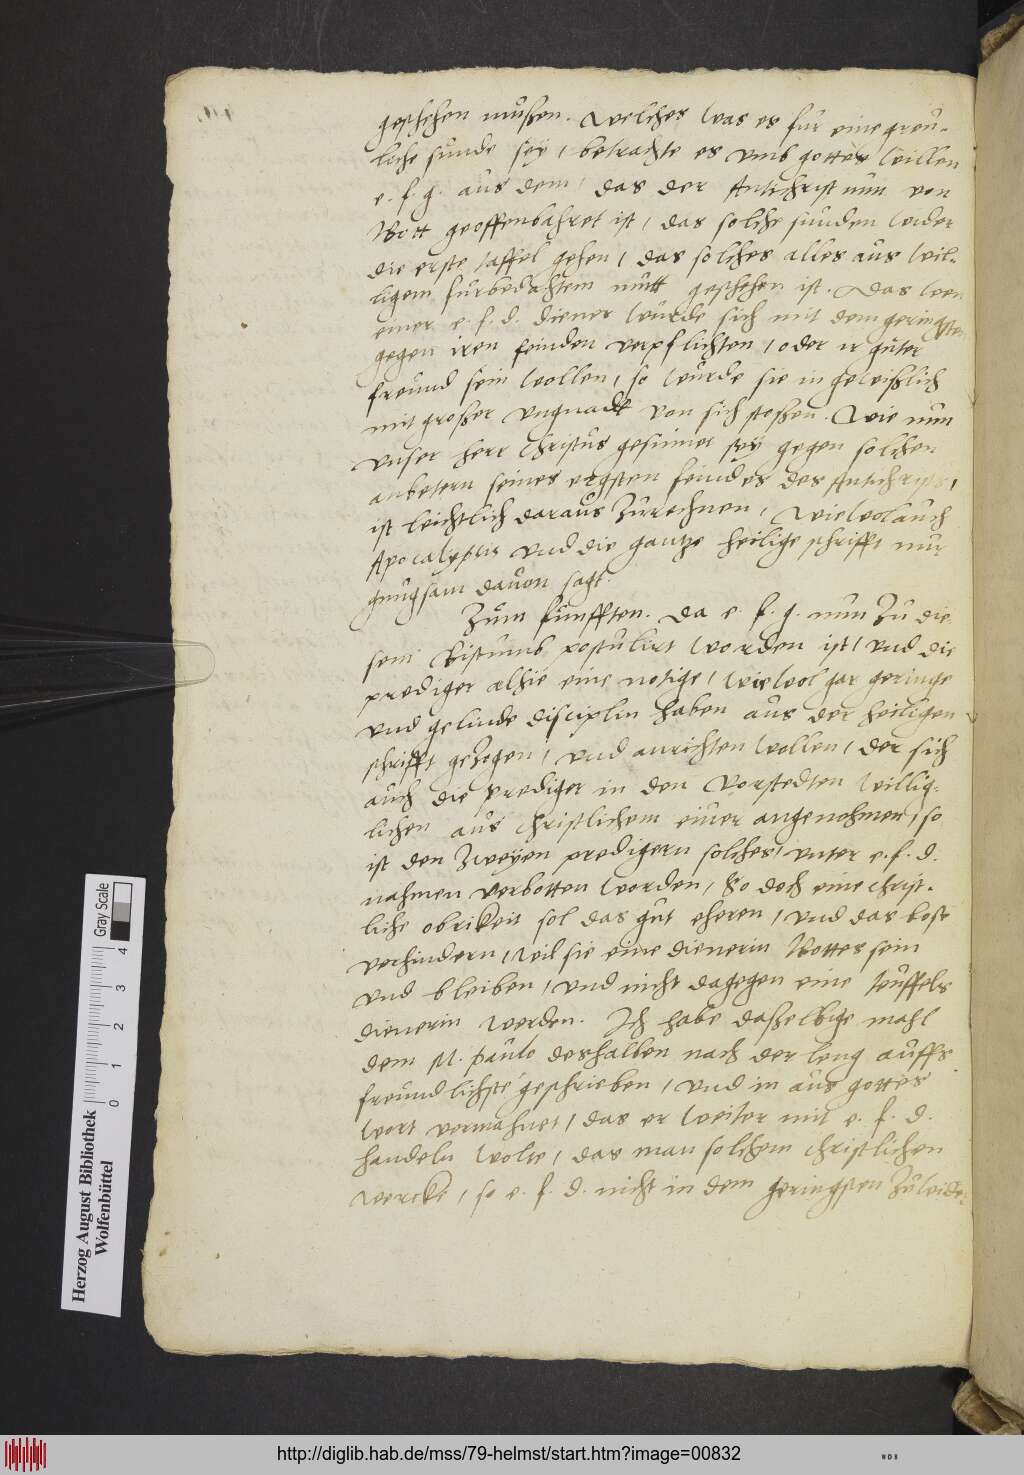 geschehen mußen. Welches was es fur eine greu-
liche sunde sey, betrachte es umb gottes willen
e. f. g. aus dem, das der Antichrist nun von
Gott geoffenbahret ist, das solche sunden wider
die erste taffel gehen, das solches alles aus wil-
ligem furbedachtem mutt geschehen ist. Das wen
einer e. f. d. diener wurde sich mit dem geringsten
gegen iren feinden verpflichten, oder ir guter
freund sein wollen, so wurde sie in gewißlich
mit großer ungnadt von sich stoßen. Wie nun
unser herr Christus gesinnet sey gegen solchen
anbetern seines ergsten feindes des Antichrists,
ist leichtlich daraus zurechnen, Wiewol auch
Apocalypsis und die gantze heilige schrifft nur
gnugsam davon sagt.
Zum funfften. Da e. f. g. nun zu die-
sem Bistumb postulirt worden ist, und die
prediger alhie eine notige, wiewol gar geringe
und gelinde disciplin haben aus der heiligen
schrifft gezogen, und anrichten wollen, der sich
auch die prediger in den vorstedten willig-
lichen aus christlichem eiver angenohmen, so
ist den zweyen predigern solches, unter e. f. d.
nahmen verbotten worden, So doch eine christ-
liche obrikeit sol das gut eheren, und das bose
verhindern, wil sie eine dienerin Gottes sein
und bleiben, und nicht dagegen eine teuffels
dienerin werden. Ich habe daßelbige mahl
dem M. Paulo deshalben nach der leng auffs
freundlichste geschrieben, und in aus gottes
wort vermahnet, das er weiter mit e. f. d.
handeln wolte, das man solchem christlichen
wercke, so e. f. d. nicht in dem geringsten zuwider
Herzog August Bibliothek
Wolfenbüttel
0 1 2 3 4
Gray Scale
http://diglib.hab.de/mss/79-helmst/start.htm?image=00832
WDB